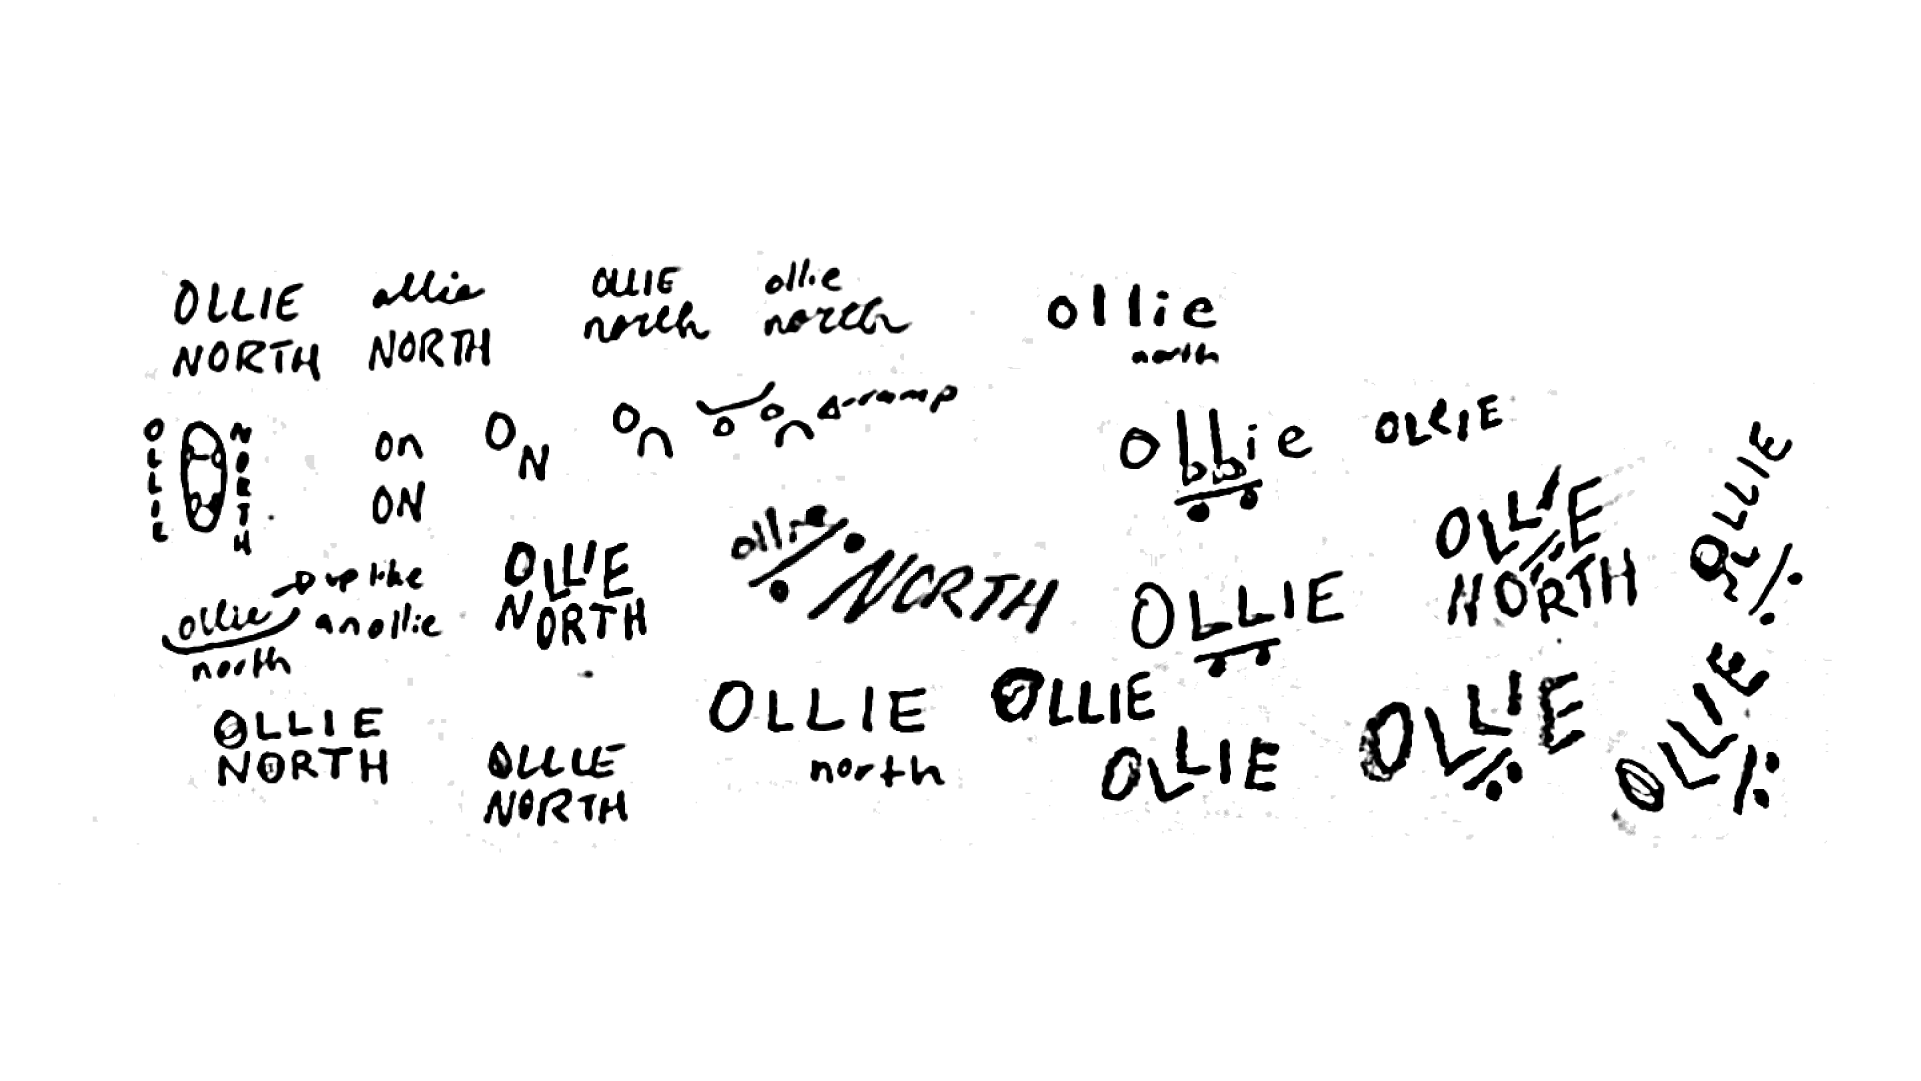 OLLIE
NORTH
ollie
NORTH
OLLIE
north
ollie
north
ollie
north
OLLIE
NORTH
on
ON
ON
on
ramp
ollie
OLLIE
ollie
north
up the
an ollie
OLLIE
NORTH
ollie
NORTH
OLLIE
OLLIE
NORTH
OLLIE
OLLIE
NORTH
OLLIE
NORTH
OLLIE
north
OLLIE
OLLIE
OLLIE
OLLIE